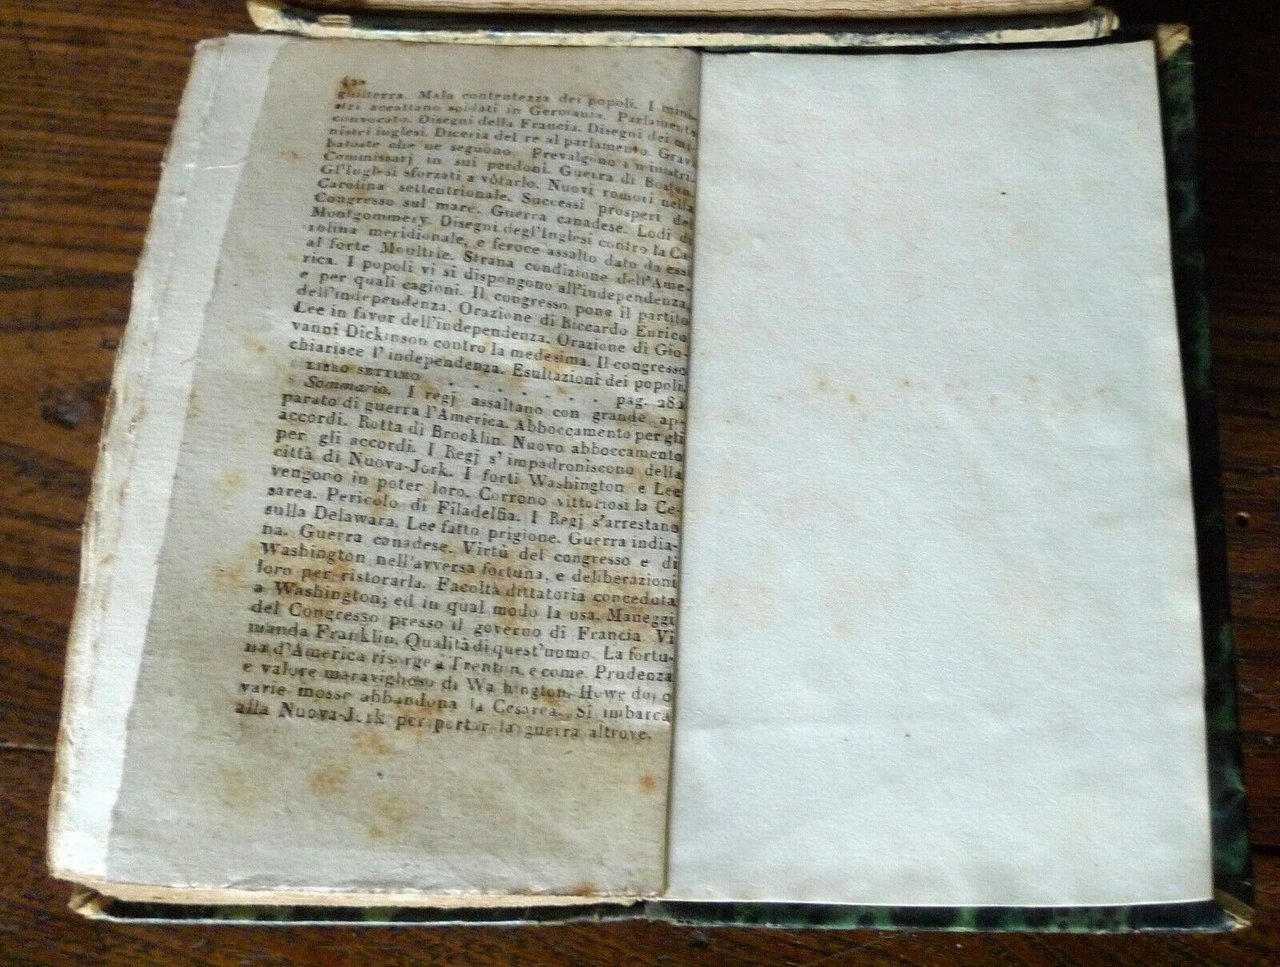 420
ghilterra. Mala contentezza dei popoli. I mini-
stri accattano soldati in Germania. Parlamento
convocato. Disegni della Francia. Disegni dei mi-
nistri inglesi. Diceria del re al parlamento. Gravi
batoste che ne seguono. Prevalgono i ministri.
Commissarj in sui perdoni. Guerra di Boston.
Gl'Inglesi sforzati a votarlo. Nuovi romori nella
Carolina settentrionale. Successi prosperi del
Congresso sul mare. Guerra canadese. Lodi di
Montgommery. Disegni degl'Inglesi contro la Ca-
rolina meridionale, e feroce assalto dato da essi
al forte Moultrie. Strana condizione dell'Ame-
rica. I popoli vi si dispongono all'independenza,
e per quali cagioni. Il congresso pone il partito
dell'independenza. Orazione di Riccardo Enrico
Lee in favor dell'independenza. Orazione di Gio-
vanni Dickinson contro la medesima. Il congresso
chiarisce l'independenza. Esultazioni dei popoli.
LIBRO SETTIMO . . . . . . . . pag. 282
Sommario. I regj assaltano con grande ap-
parato di guerra l'America. Abboccamento per gli
accordi. Rotta di Brooklin. Nuovo abboccamento
per gli accordi. I Regj s'impadroniscono della
città di Nuova-Jork. I forti Washington e Lee
vengono in poter loro. Corrono vittoriosi la Ce-
sarea. Pericolo di Filadelfia. I Regj s'arrestano
sulla Delawara. Lee fatto prigione. Guerra india-
na. Guerra canadese. Virtù del congresso e di
Washington nell'avversa fortuna, e deliberazioni
loro per ristorarla. Facoltà dittatoria conceduta
a Washington; ed in qual modo la usa. Maneggi
del Congresso presso il governo di Francia. Vi
manda Franklin. Qualità di quest'uomo. La fortu-
na d'America risorge a Trenton, e come. Prudenza
e valore maraviglioso di Washington. Howe dopo
varie mosse abbandona la Cesarea. Si imbarca
alla Nuova-Jork per portar la guerra altrove.